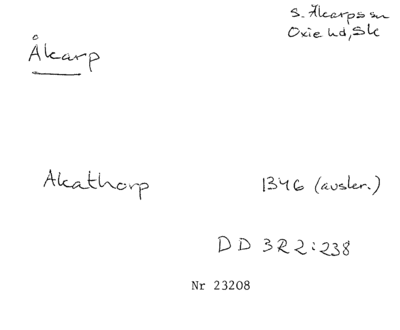 S. Åkarps sn
Oxie hd, Sk
Åkarp
Akathorp 1346 (avskr.)
DD 3R 2:238
Nr 23208